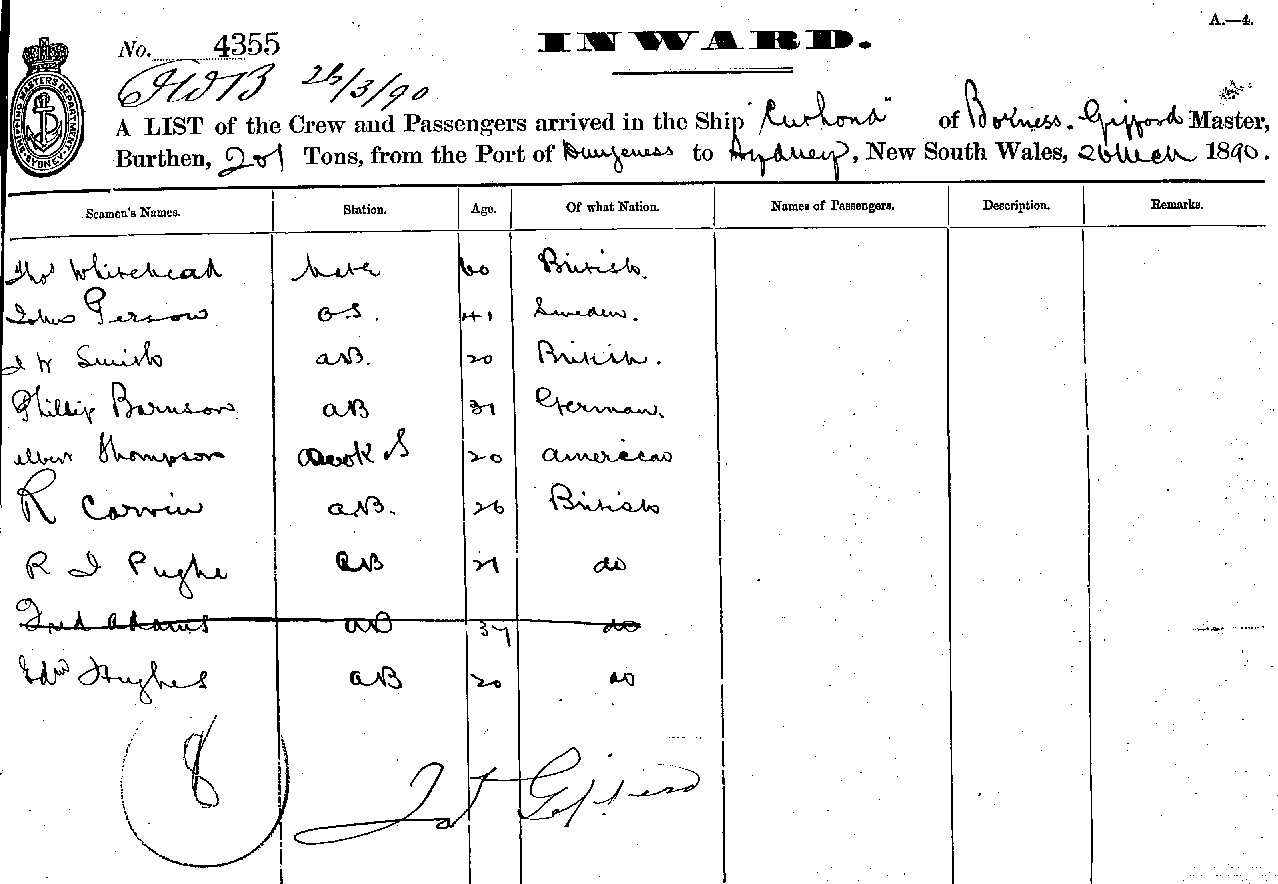 A.—4.
No. 4355 INWARD.
26/3/90
SHIPPING MASTERS DEPARTMENT SYDNEY
A LIST of the Crew and Passengers arrived in the Ship " " of . Gifford Master,
Burthen, 201 Tons, from the Port of Dungeness to Sydney, New South Wales, 26 March 1890.
Seamen's Names. Station. Age. Of what Nation. Names of Passengers. Description. Remarks.
Thos Whitehead Mate 60 British.
John Person O.S. 41 Sweden.
J W Smith AB. 20 British.
Phillip Barnson AB 31 German.
Albert Thompson Cook S 20 American
R Corwin AB. 26 British
R J Pughe AB 21 do
Fred Adams AB 37 do
Edw Hughes AB 20 do
8
Gifford